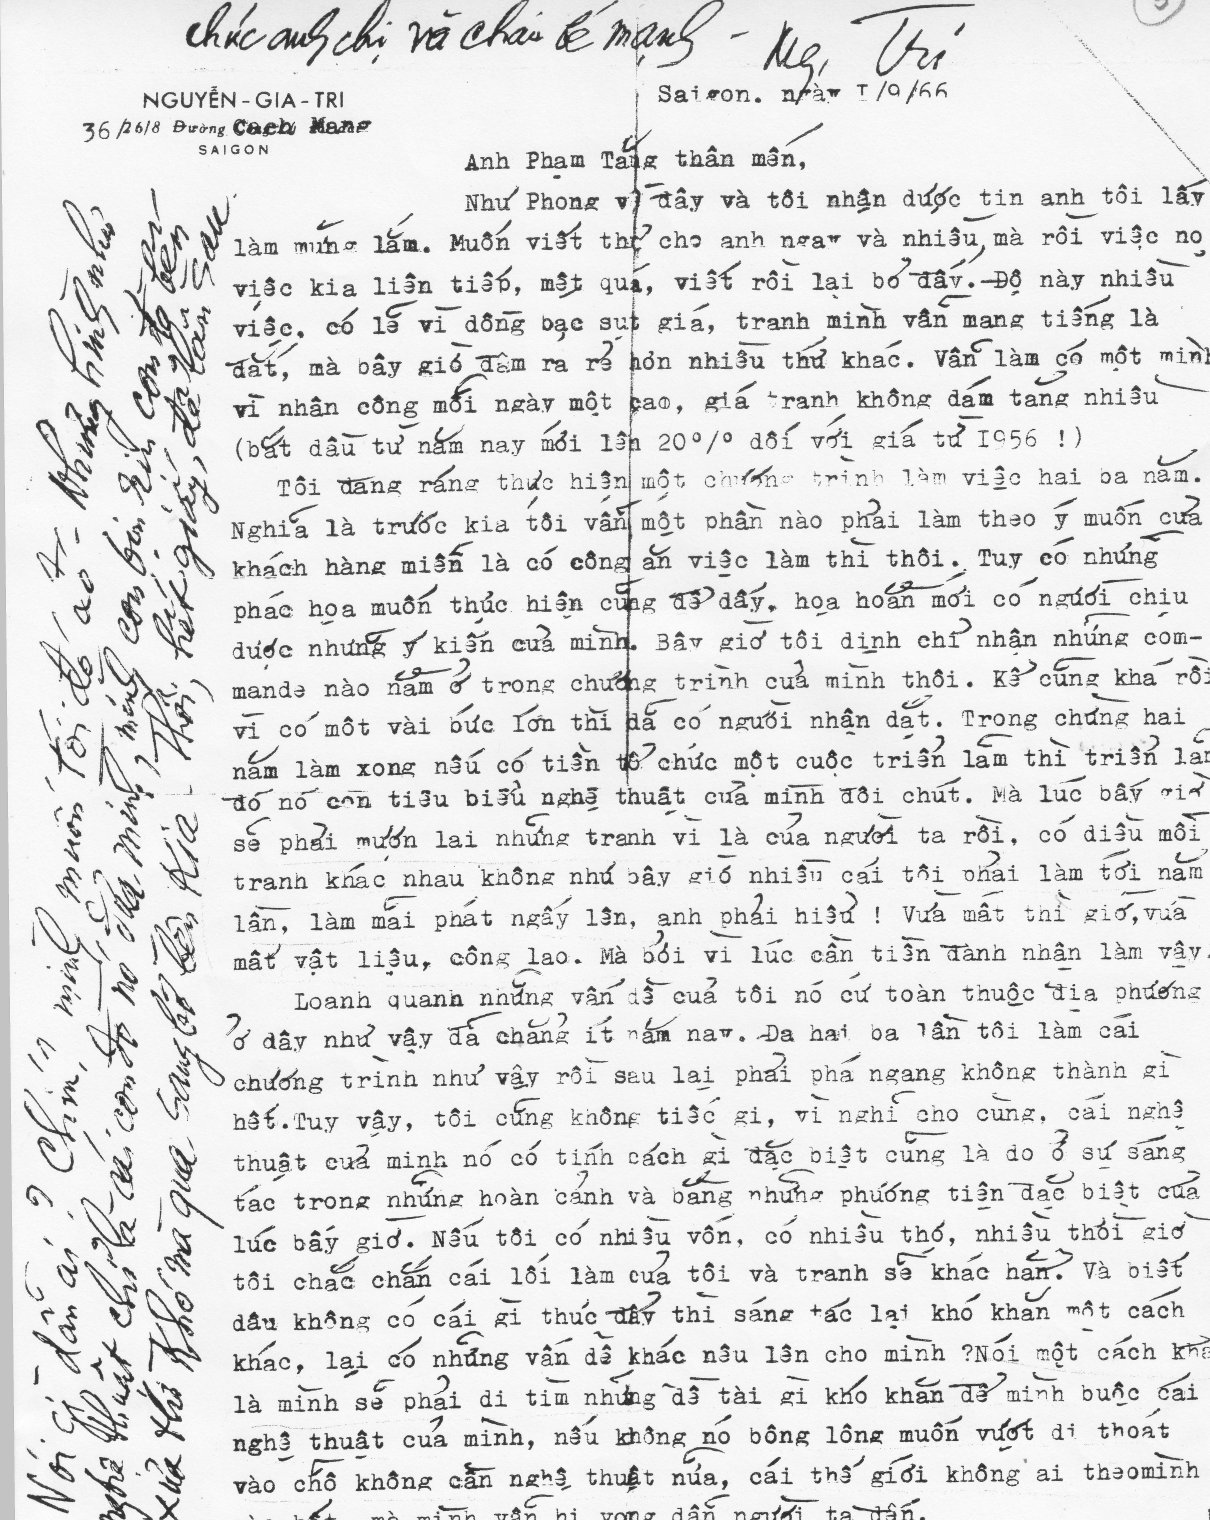 chúc anh chị và cháu bé mạnh –
Ng. Trí
NGUYỄN-GIA-TRI
36/26/8 Đường Cach Mang
SAIGON
Saigon. ngày I/9/66
Anh Phạm Tăng thân mến,
Như Phong về đây và tôi nhận dược tin anh tôi lấy
làm mừng lắm. Muốn viết thư cho anh ngay và nhiều, mà rồi việc nọ
việc kia liên tiếp, mệt quá, viết rồi lại bỏ đấy.-Độ này nhiều
việc. có lẽ vì đồng bạc sụt giá, tranh mình vẫn mang tiếng là
đắt, mà bây giờ đâm ra rẻ hơn nhiều thứ khác. Vẫn làm có một mình
vì nhân công mỗi ngày một cao, giá tranh không dám tăng nhiều
(bắt dầu từ năm nay mới lên 20º/º dối với giá từ I956 !)
Tôi đang ráng thực hiện một chương trình làm việc hai ba năm.
Nghiã là trước kia tôi vẫn một phần nào phải làm theo ý muốn của
khách hàng miễn là có công ăn việc làm thì thôi. Tuy có những
phác họa muốn thực hiện cũng để đấy. họa hoằn mới có người chịu
dược những ý kiến của mình. Bây giờ tôi dịnh chỉ nhận những com-
mande nào nằm ở trong chương trình của mình thôi. Kể cũng khá rồi
vì có một vài bức lớn thì dã có người nhận dặt. Trong chừng hai
năm làm xong nếu có tiền tổ chức một cuộc triển lãm thì triển lãm
đó nó còn tiêu biểu nghệ thuật của mình đôi chút. Mà lúc bấy giờ
sẽ phải mượn lại những tranh vì là của người ta rồi, có diều mỗi
tranh khác nhau không như bây giờ nhiều cái tôi phải làm tới năm
lần, làm mãi phát ngấy lên, anh phải hiểu ! Vừa mất thì giờ,vừa
mất vật liệu, công lao. Mà bởi vì lúc cần tiền đành nhận làm vậy.
Loanh quanh những vấn dề cuả tôi nó cứ toàn thuộc địa phương
ở dây như vậy đã chẳng ít năm nay. Đa hai ba lần tôi làm cái
chương trình như vậy rồi sau lại phải phá ngang không thành gì
hết.Tuy vậy, tôi cũng không tiếc gi, vì nghĩ cho cùng, cái nghệ
thuật cuả minh nó có tính cách gì đặc biệt cũng là do ở sự sáng
tác trong những hoàn cảnh và bằng những phương tiện đặc biệt của
lúc bấy giờ. Nếu tôi có nhiều vốn, có nhiều thợ, nhiều thời giờ
tôi chắc chắn cái lối làm của tôi và tranh sẽ khác hẳn. Và biết
dâu không có cái gì thúc đẩy thì sáng tác lại khó khăn một cách
khác, lại có những vấn dề khác nêu lên cho mình ?Nói một cách khác
là mình sẽ phải di tìm những dề tài gì khó khăn để mình buộc cái
nghệ thuật của mình, nếu không nó bông lông muốn vượt di thoát
vào chỗ không cần nghệ thuật nữa, cái thế giới không ai theomình
mà mình vẫn hi vọng dẫn người ta đến.
Nói gì dẫn ai ? Chính mình muốn tới đó
nghệ thuật chỉ là cái con đò nó đưa mình,
xưa thì khó mà qua sang bờ bên kia – Thôi, hết giấy, đã lan sau.